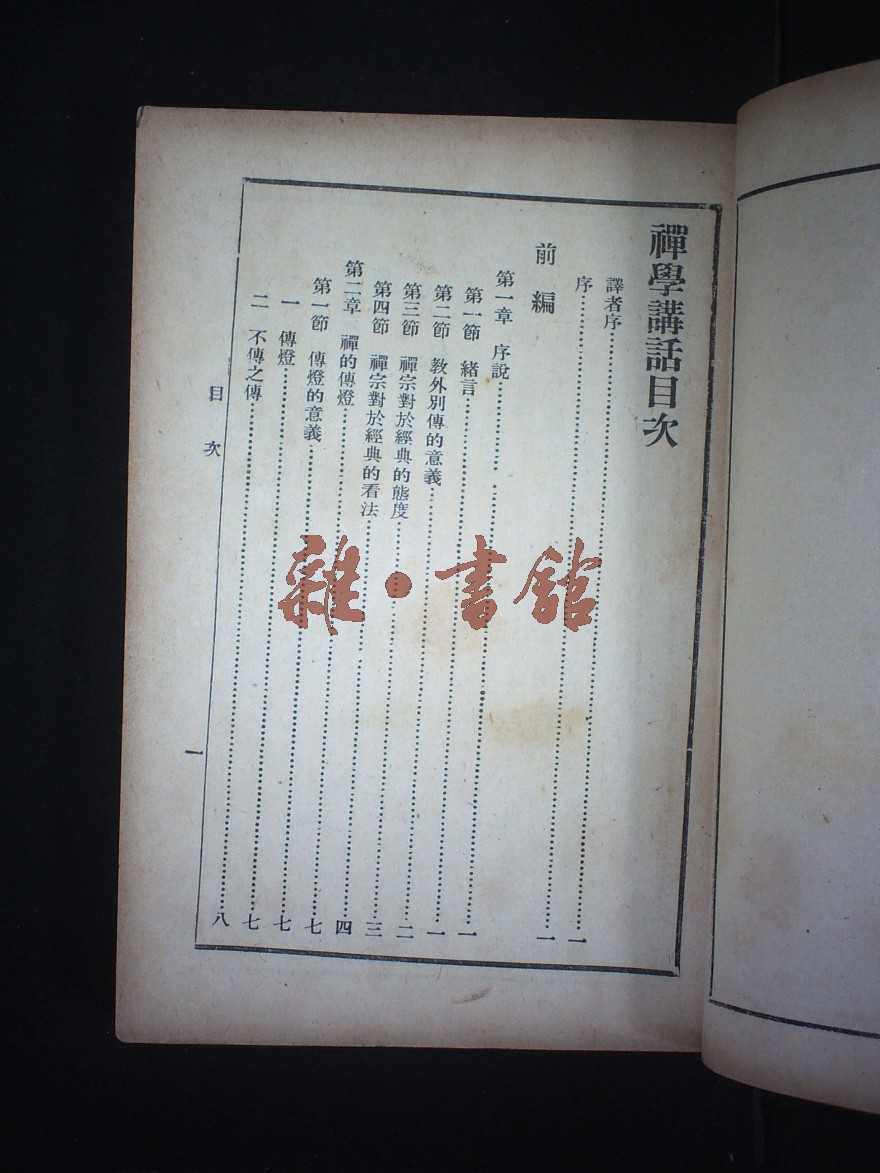 禪學講話目次
譯者序……一
序……一
前編
第一章 序說……一
第一節 緒言……一
第二節 教外別傳的意義……二
第三節 禪宗對於經典的態度……三
第四節 禪宗對於經典的看法……四
第二章 禪的傳燈……七
第一節 傳燈的意義……七
一 傳燈……七
二 不傳之傳……八
目次
一
雜·書館